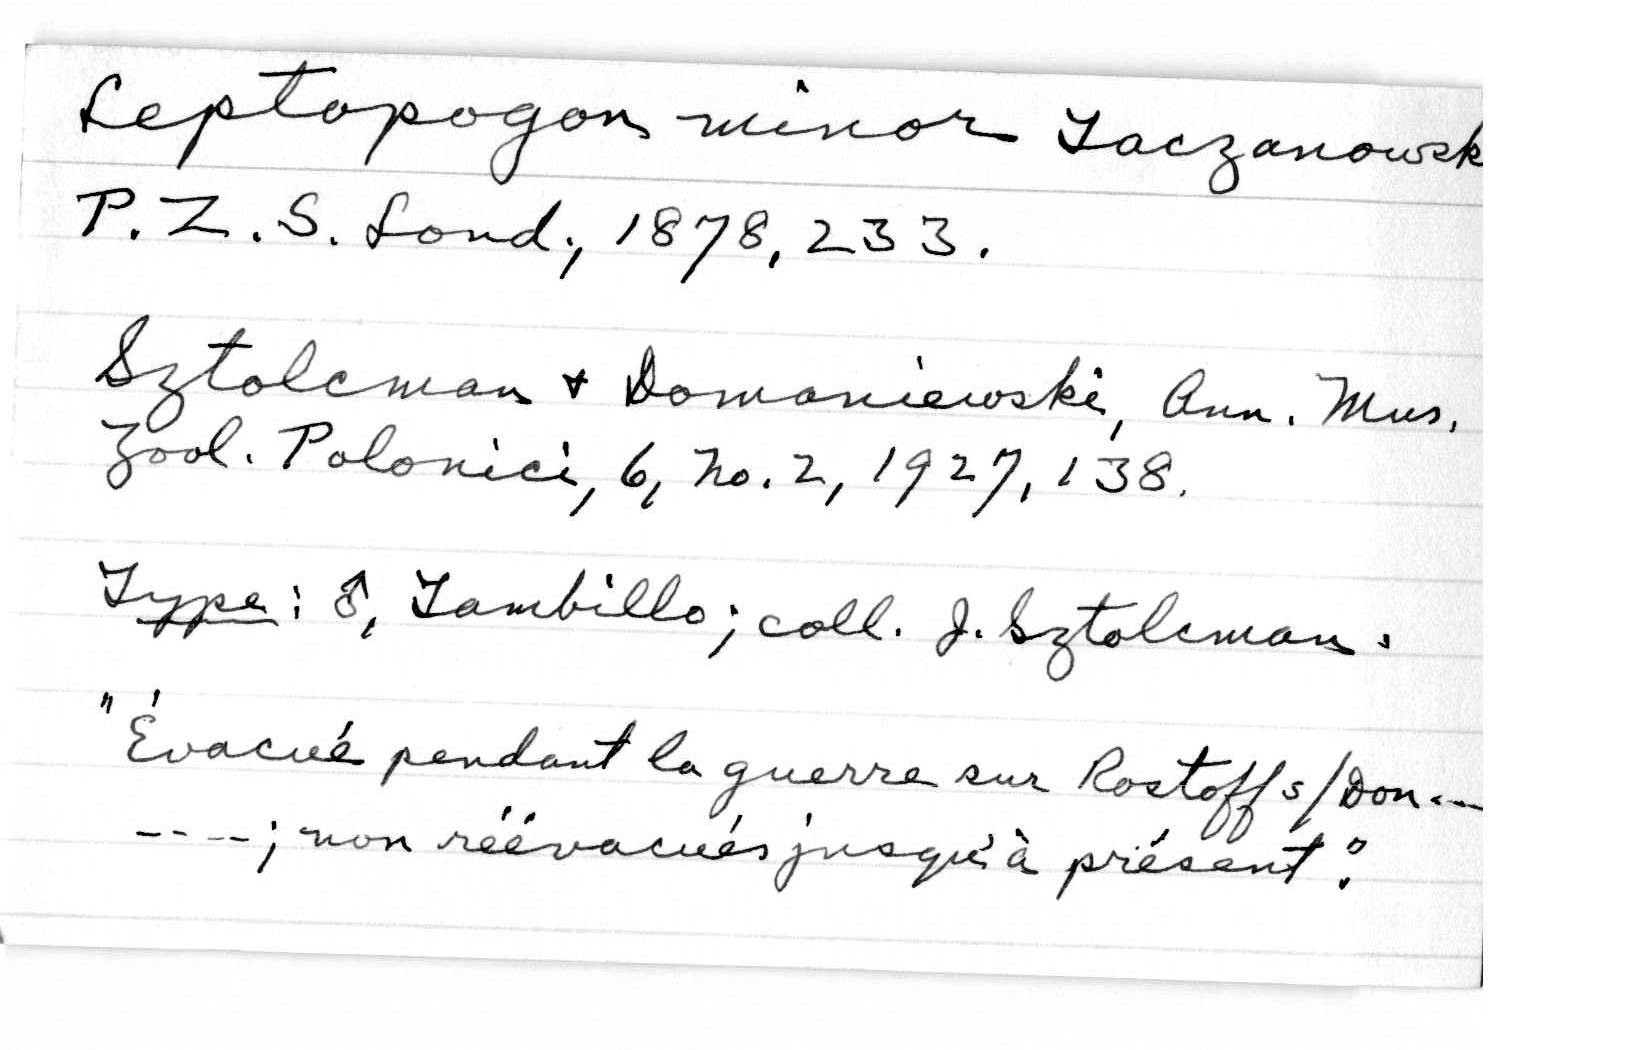 Leptopogon minor Taczanowsk
P. Z. S. Lond., 1878, 233.
Sztolcman & Domaniewski, Ann. Mus.
Zool. Polonici, 6, No. 2, 1927, 138.
Type: ♂, Tambillo; coll. J. Sztolcman.
"Évacué pendant la guerre sur Rostoff s/Don ---
----; non réévacués jusqu'à présent".